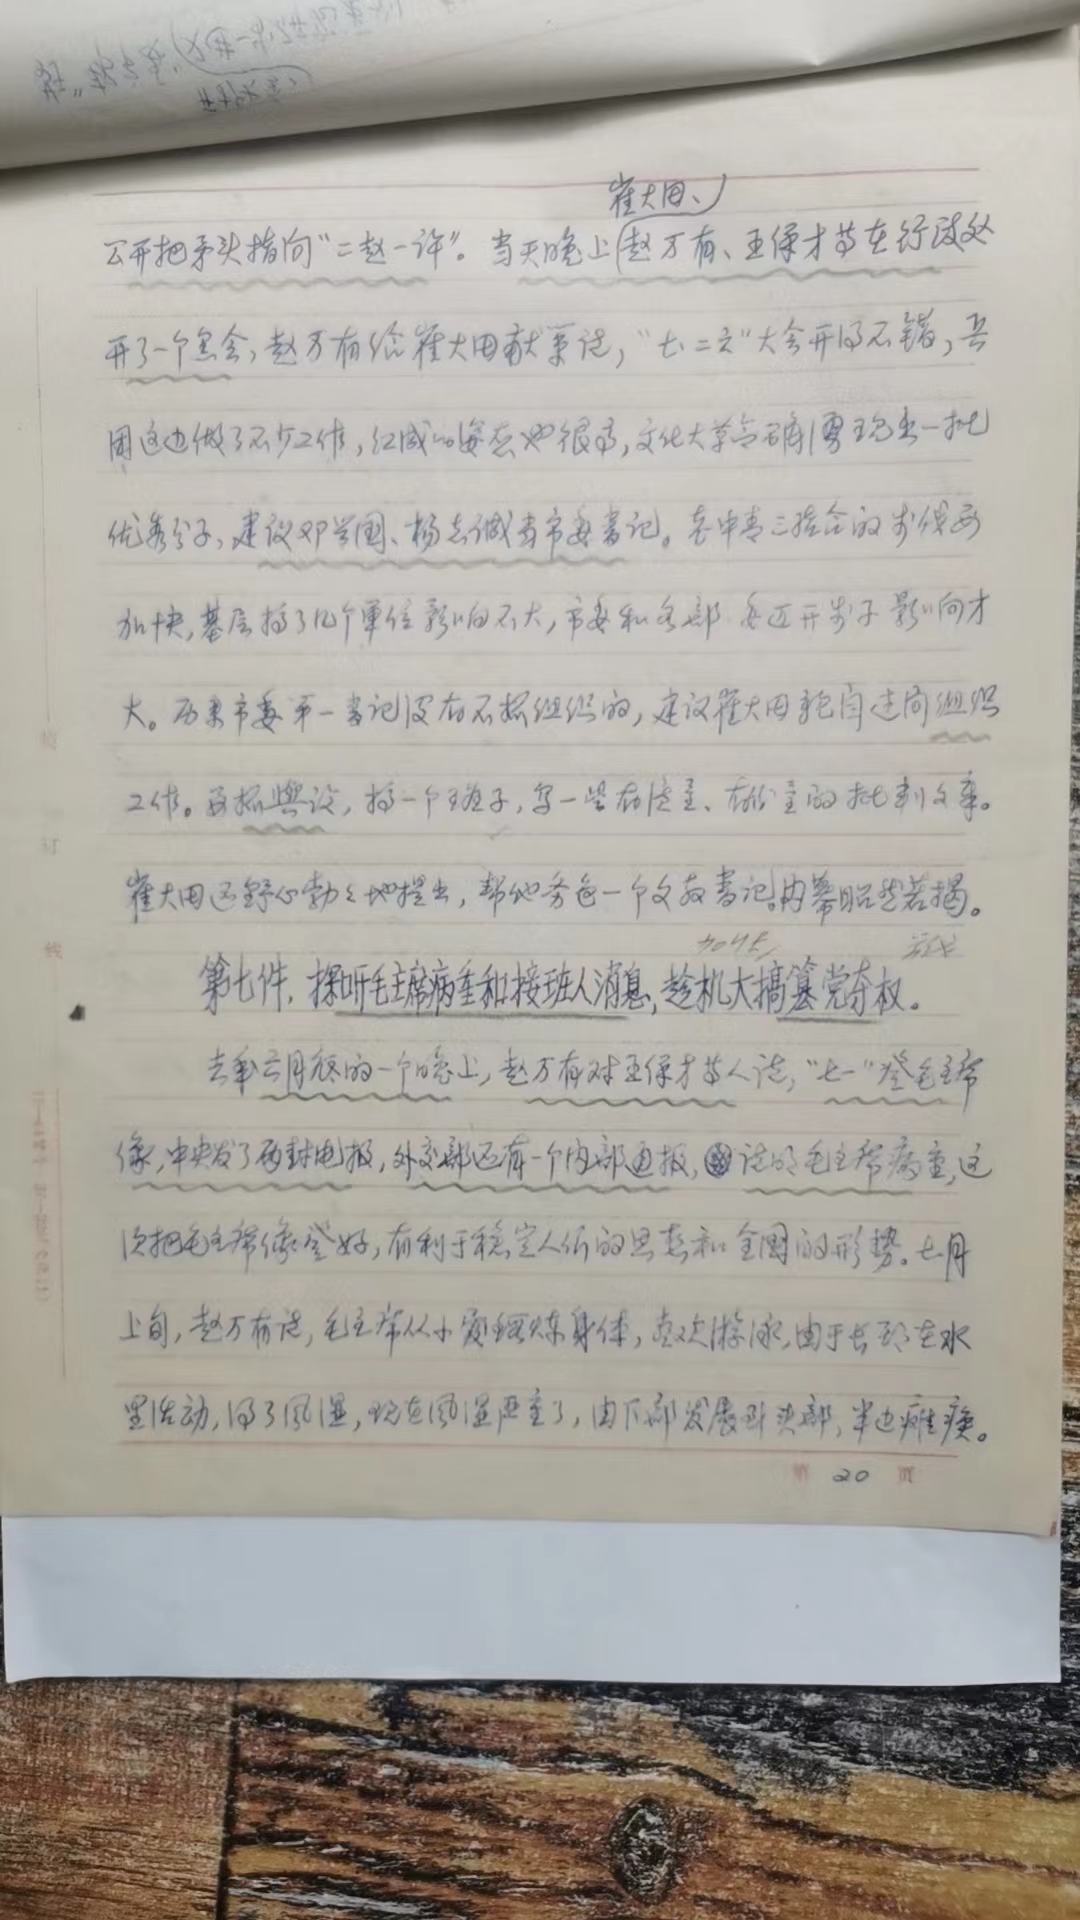 崔大田、
公开把矛头指向“二赵一许”。当天晚上赵万有、王保才等在行政处
开了一个黑会，赵万有给崔大田献策说，“七.二六”大会开的不错，兵
团这边做了不少工作，红威的姿态也很高，文化大革命中涌现出一批
优秀分子，建议邓学国、杨志诚当市委书记。老中青三结合的步伐要
加快，基层搞了几个单位影响不大，市委和各部委迈开步子影响才
大。历来市委第一书记没有不抓组织的，建议崔大田亲自过问组织
工作。要抓舆论，搞一个班子，写一些有质量、有份量的批判文章。
崔大田还野心勃勃地提出，帮他务色一个文教书记。内幕昭然若揭。
第七件，探听毛主席病重和接班人消息，趁机大搞篡党夺权。
去年六月底的一个晚上，赵万有对王保才等人说，“七一”登毛主席
像，中央发了两封电报，外交部还有一个内部通报，说明毛主席病重，这
次把毛主席像登好，有利于稳定人们的思想和全国的形势。七月
上旬，赵万有说，毛主席从小爱锻炼身体，喜欢游泳，由于长期在水
里活动，得了风湿，现在风湿严重了，由下部发展到头部，半边瘫痪。
第 20 页
装
订
线